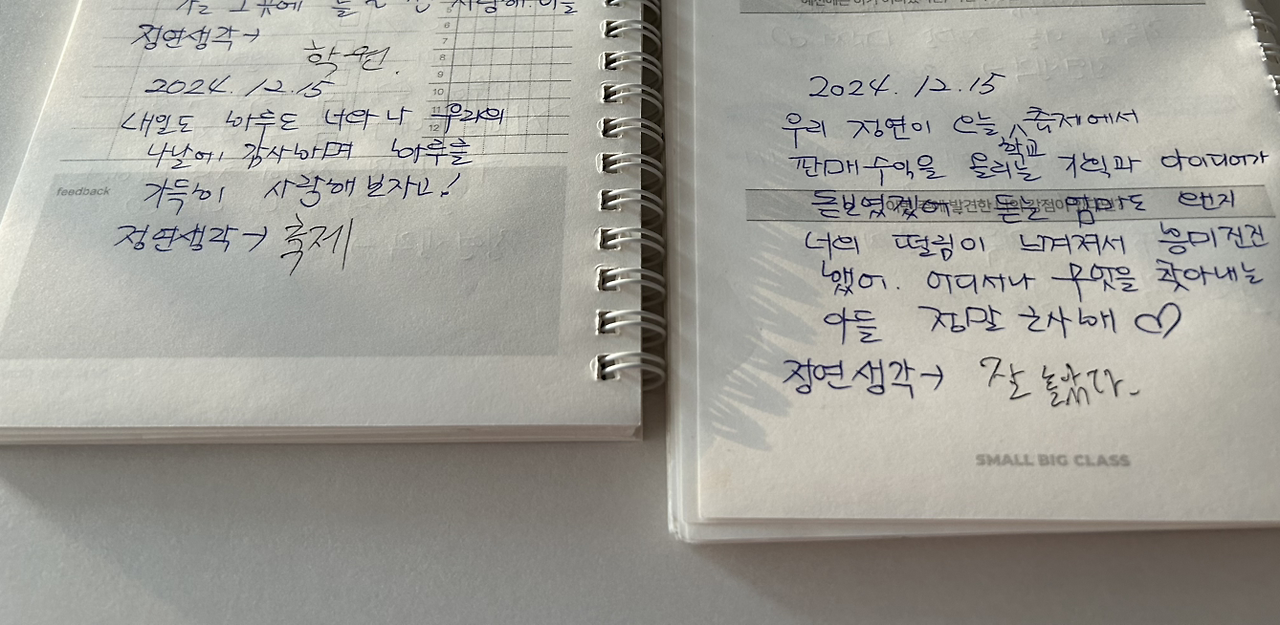 정연생각→
학원.
2024. 12. 15
내일도 하루도 너와 나 우리의
나날에 감사하며 하루를
feedback
가득히 사랑해보자고!
정연생각→ 축제
6
7
8
9
10
11
12
2024. 12. 15
우리 정연이 오늘 학교 축제에서
판매수익을 올리는 기획과 아이디어가
돋보였겠어 듣는 맘마도 왠지
너의 떨림이 느껴져서 흥미진진
했어. 어디서나 무엇을 찾아내는
아들 정말 근사해 ♡
정연생각→ 잘 놀았다.
SMALL BIG CLASS